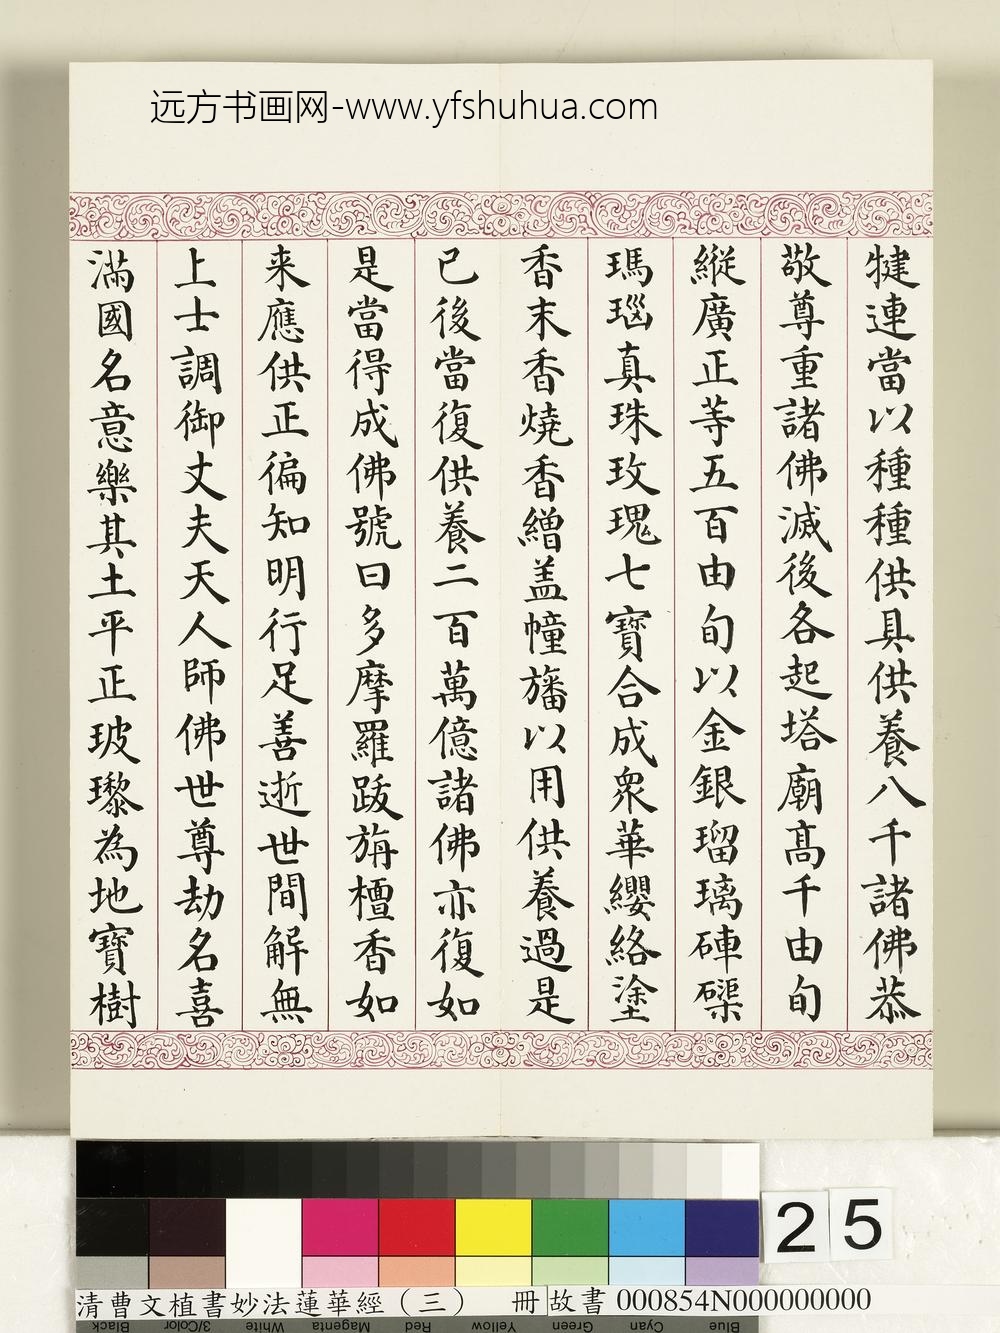 远方书画网-www.yfshuhua.com
揵連當以種種供具供養八千諸佛恭
敬尊重諸佛滅後各起塔廟髙千由旬
縱廣正等五百由旬以金銀瑠璃硨磲
瑪瑙真珠玫瑰七寶合成衆華纓絡塗
香末香燒香繒盖幢旛以用供養過是
已後當復供養二百萬億諸佛亦復如
是當得成佛號曰多摩羅跋旃檀香如
来應供正徧知明行足善逝世間解無
上士調御丈夫天人師佛世尊劫名喜
滿國名意樂其土平正玻瓈為地寶樹
25
清曹文植書妙法蓮華經（三） 冊 故書 000854N000000000
Black 3/Color White Magenta Red Yellow Green Cyan Blue